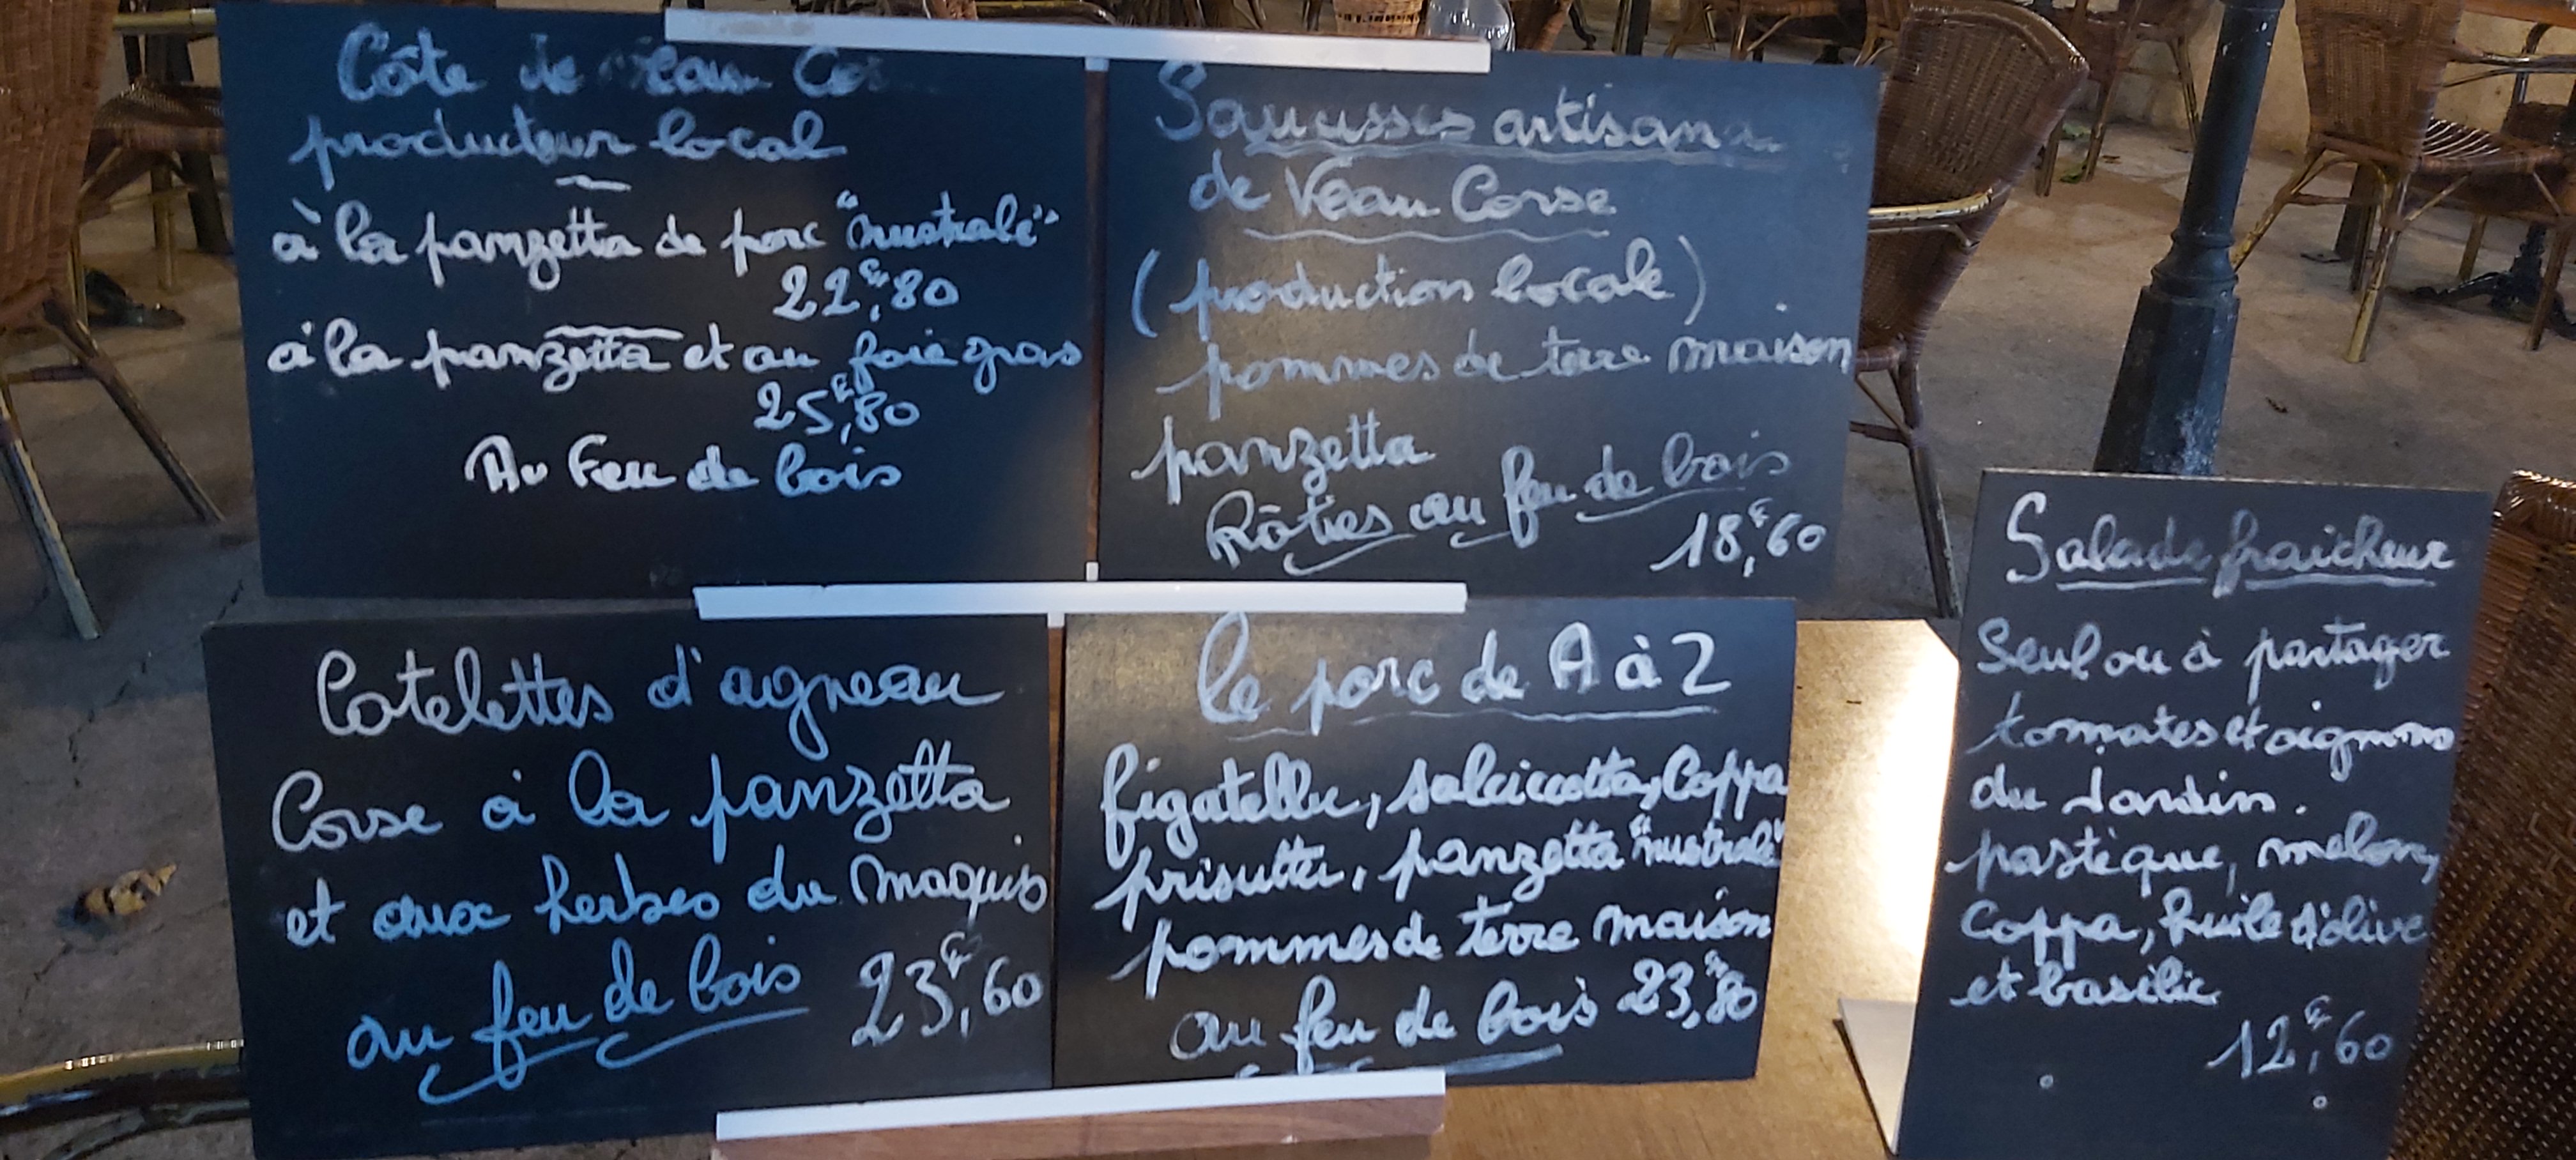 Côte de Veau Co
producteur local
à la panzetta de porc "nustrale"
22€,80
à la panzetta et au foie gras
25€,80
Au Feu de bois
Saucisses artisana
de Veau Corse
(production locale)
pommes de terre maison
panzetta
Rôties au feu de bois
18€,60
Cotelettes d'agneau
Corse à la panzetta
et aux herbes du Maquis
au feu de bois 23€,60
Le porc de A à Z
figatellu, salciccetta, Coppa
prisuttu, panzetta "nustrale"
pommes de terre maison
au feu de bois 23€,80
Salade fraicheur
Seul ou à partager
tomates et oignons
du Jardin.
pastèque, melon,
Coppa, huile d'olive
et basilic
12€,60